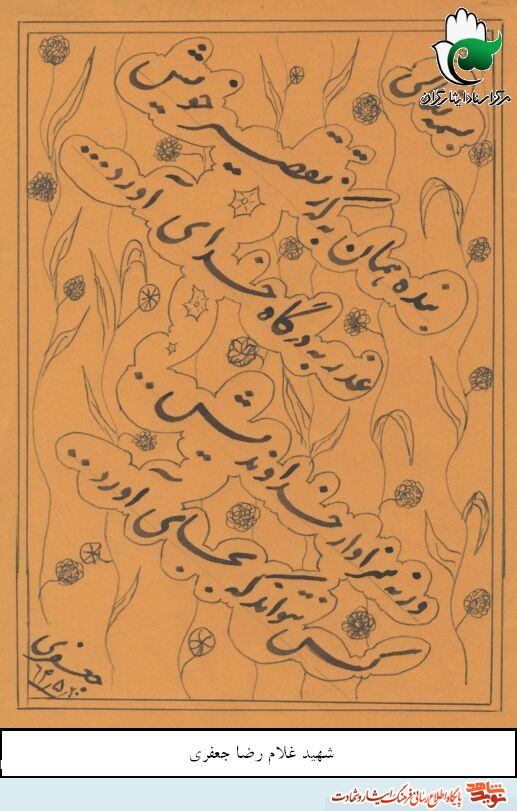 مرکز اسناد ایثارگران
بسمه تعالی
بنده همان به که ز تقصیر خویش
عذر به درگاه خدای آورد...
ورنه سزاوار خداوندیش...
کس نتواند که بجای آورد...
جعفری
۶۴٫۵٫۲۰
شهید غلام رضا جعفری
نوید شاهد پایگاه اطلاع رسانی فرهنگ ایثار و شهادت